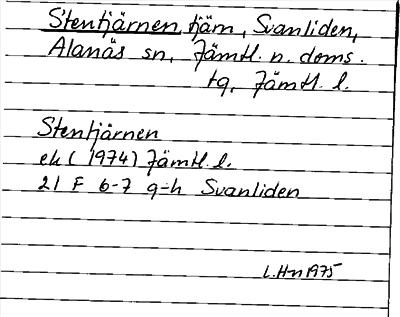 Stentjärnen, tjärn, Svanliden,
Alanäs sn, Jämtl. n. doms.
tg, Jämtl. l.
Stentjärnen
ek (1974) Jämtl. l.
21 F 6-7 g-h Svanliden
L.Hn 1975